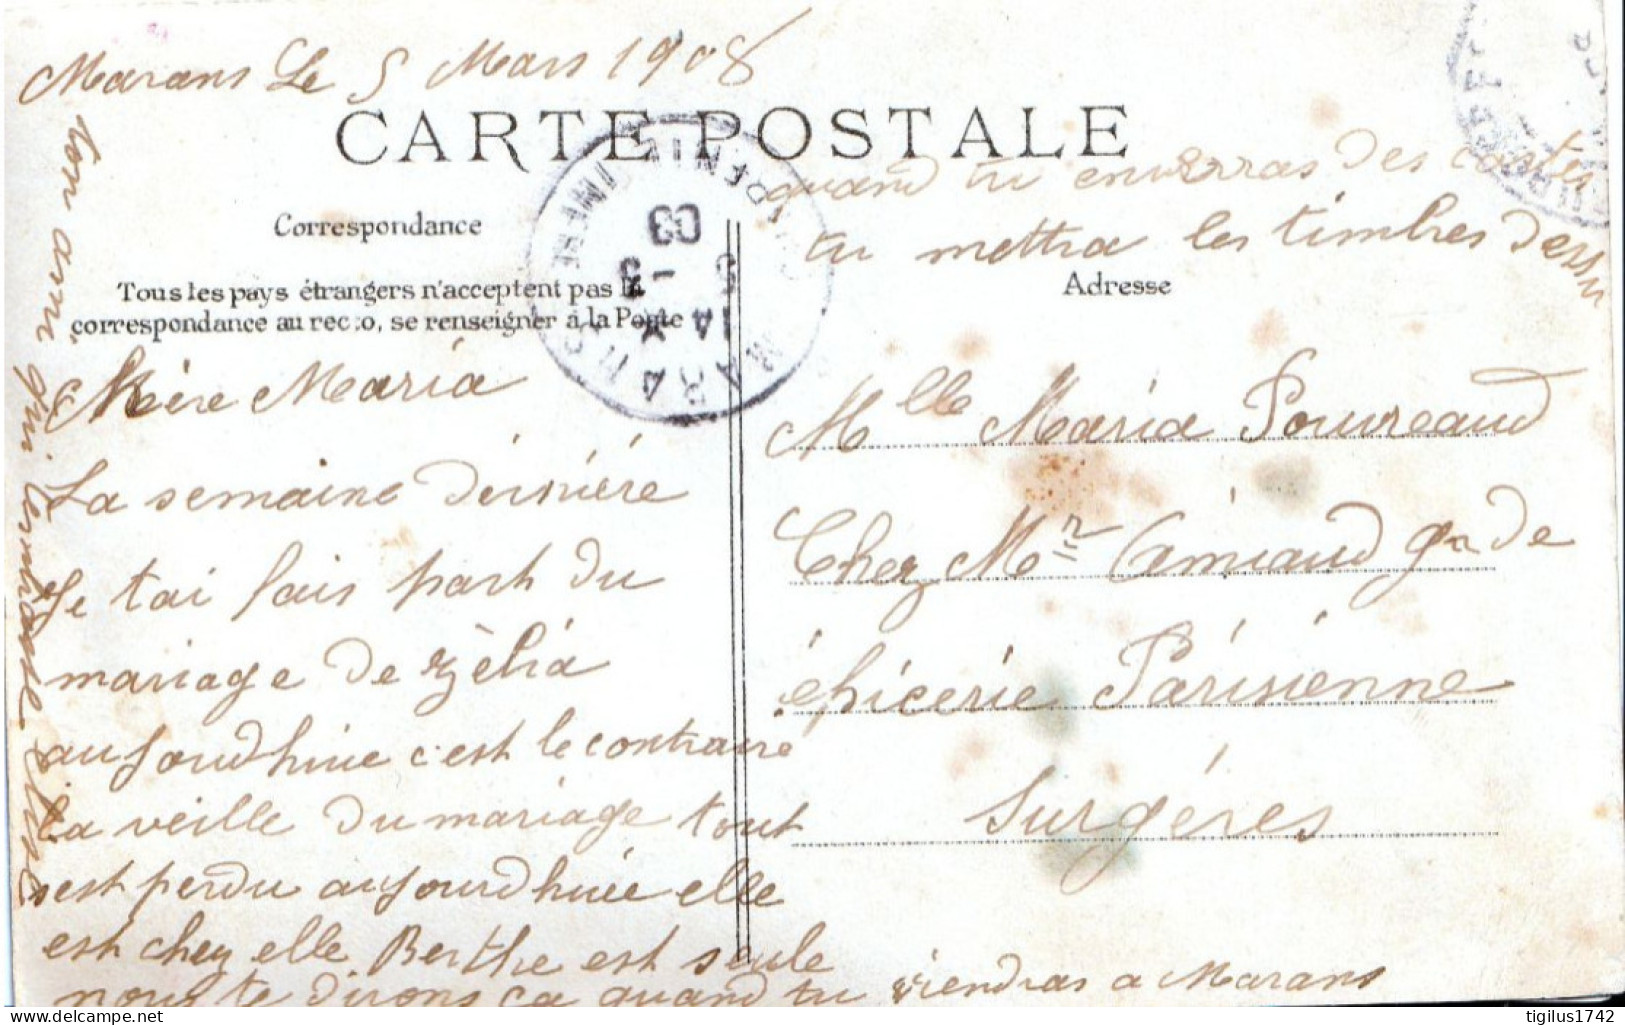 Marans Le 5 Mars 1908
CARTE POSTALE
quand tu enverras des cartes
tu mettra les timbres dessu
Correspondance
Adresse
Tous les pays étrangers n'acceptent pas la
correspondance au recto, se renseigner à la Poste
MARANS
CHARENTE INFRE
Chère Maria
La semaine dernière
Je tai fais part du
mariage de Zélia
aujourdhuie c'est le contraire
La veille du mariage tout
sest perdu aujourdhuie elle
est chez elle Berthe est seule
nous te dirons ça quand tu viendras a Marans
ton ami qui lembrasse
Mlle Maria Pouvreaud
Chez Mr Camiaud gde
épicerie Parisienne
Surgères
tigilus1742